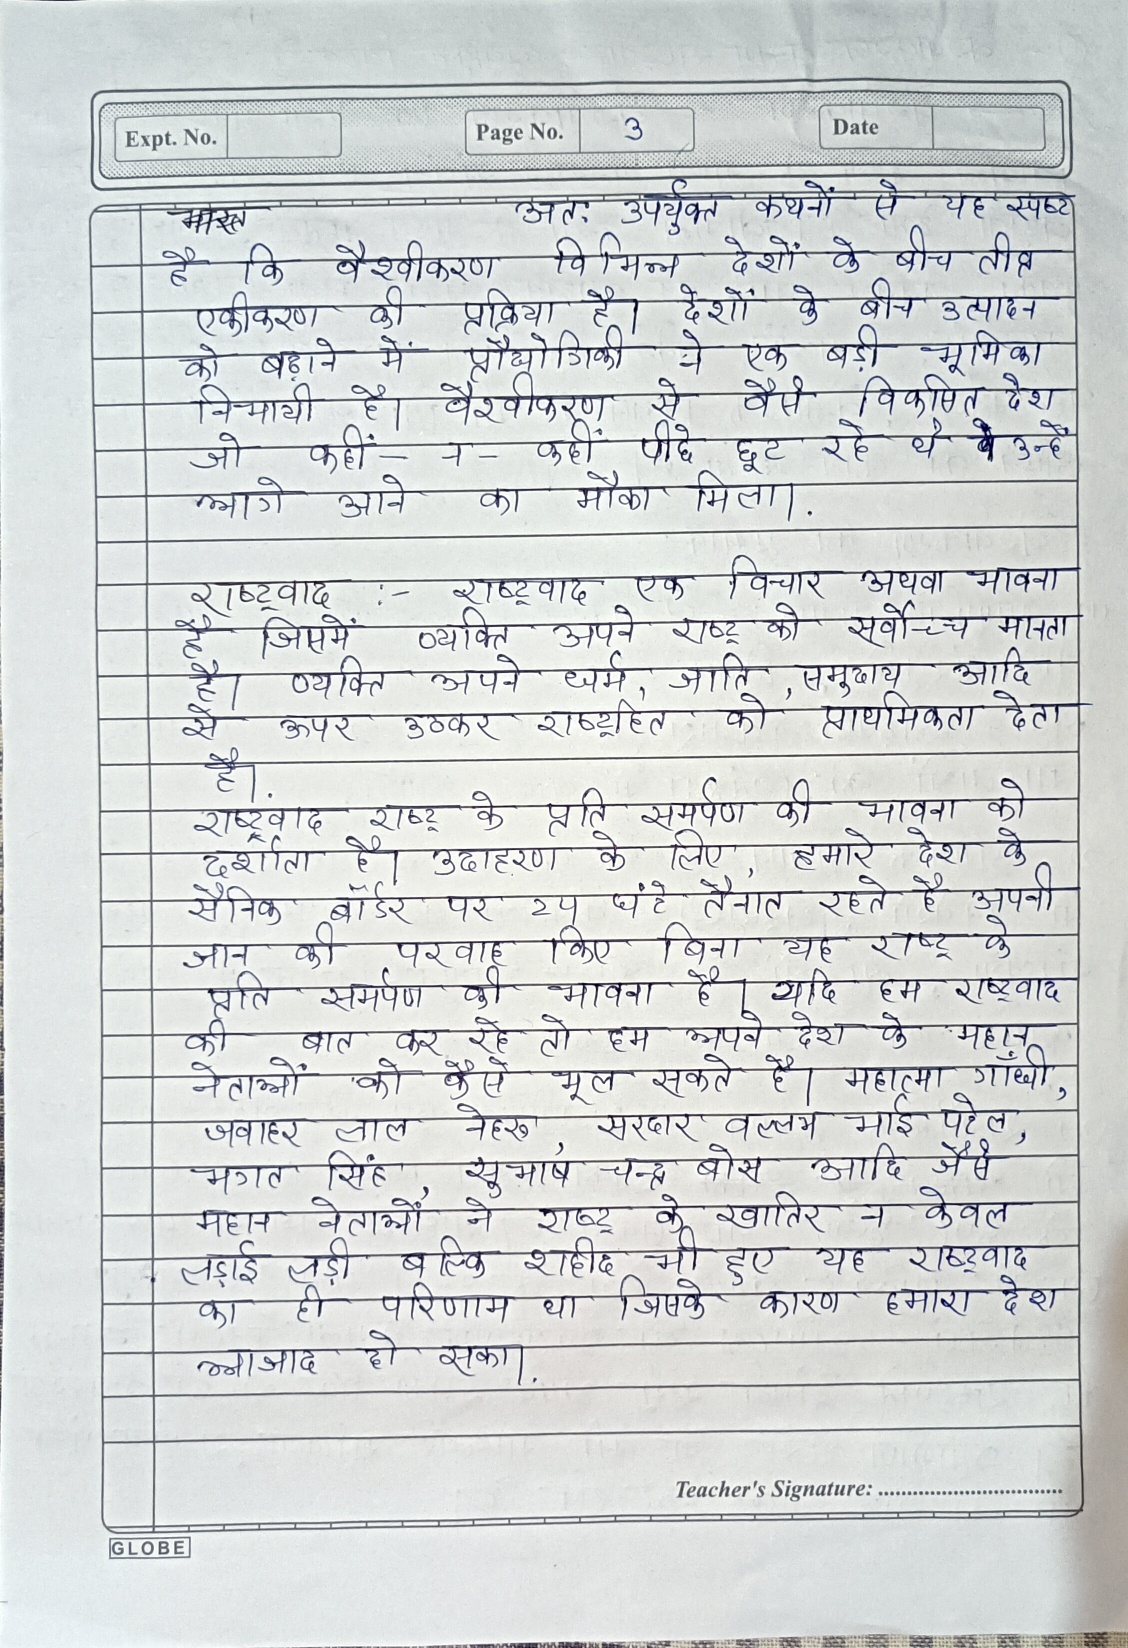 Expt. No. Page No. 3 Date
अतः उपर्युक्त कथनों से यह स्पष्ट
है कि वैश्वीकरण विभिन्न देशों के बीच तीव्र
एकीकरण की प्रक्रिया है। देशों के बीच उत्पादन
को बढ़ाने में प्रौद्योगिकी ने एक बड़ी भूमिका
निभायी है। वैश्वीकरण से वैसे विकसित देश
जो कहीं - न - कहीं पीछे छूट रहे थे उन्हें
आगे आने का मौका मिला।.
राष्ट्रवाद :- राष्ट्रवाद एक विचार अथवा भावना
है जिसमें व्यक्ति अपने राष्ट्र को सर्वोच्च मानता
है। व्यक्ति अपने धर्म, जाति, समुदाय आदि
से ऊपर उठकर राष्ट्रहित को प्राथमिकता देता
है।.
राष्ट्रवाद राष्ट्र के प्रति समर्पण की भावना को
दर्शाता है। उदाहरण के लिए, हमारे देश के
सैनिक बॉर्डर पर २४ घंटे तैनात रहते है अपनी
जान की परवाह किए बिना यह राष्ट्र के
प्रति समर्पण की भावना है। यदि हम राष्ट्रवाद
की बात कर रहे तो हम अपने देश के महान
नेताओं को कैसे भूल सकते है। महात्मा गाँधी,
जवाहर लाल नेहरू, सरदार वल्लभ भाई पटेल,
भगत सिंह, सुभाष चन्द्र बोस आदि जैसे
महान नेताओं ने राष्ट्र के खातिर न केवल
लड़ाई लड़ी बल्कि शहीद भी हुए यह राष्ट्रवाद
का ही परिणाम था जिसके कारण हमारा देश
आजाद हो सका।.
Teacher's Signature: ................................
GLOBE